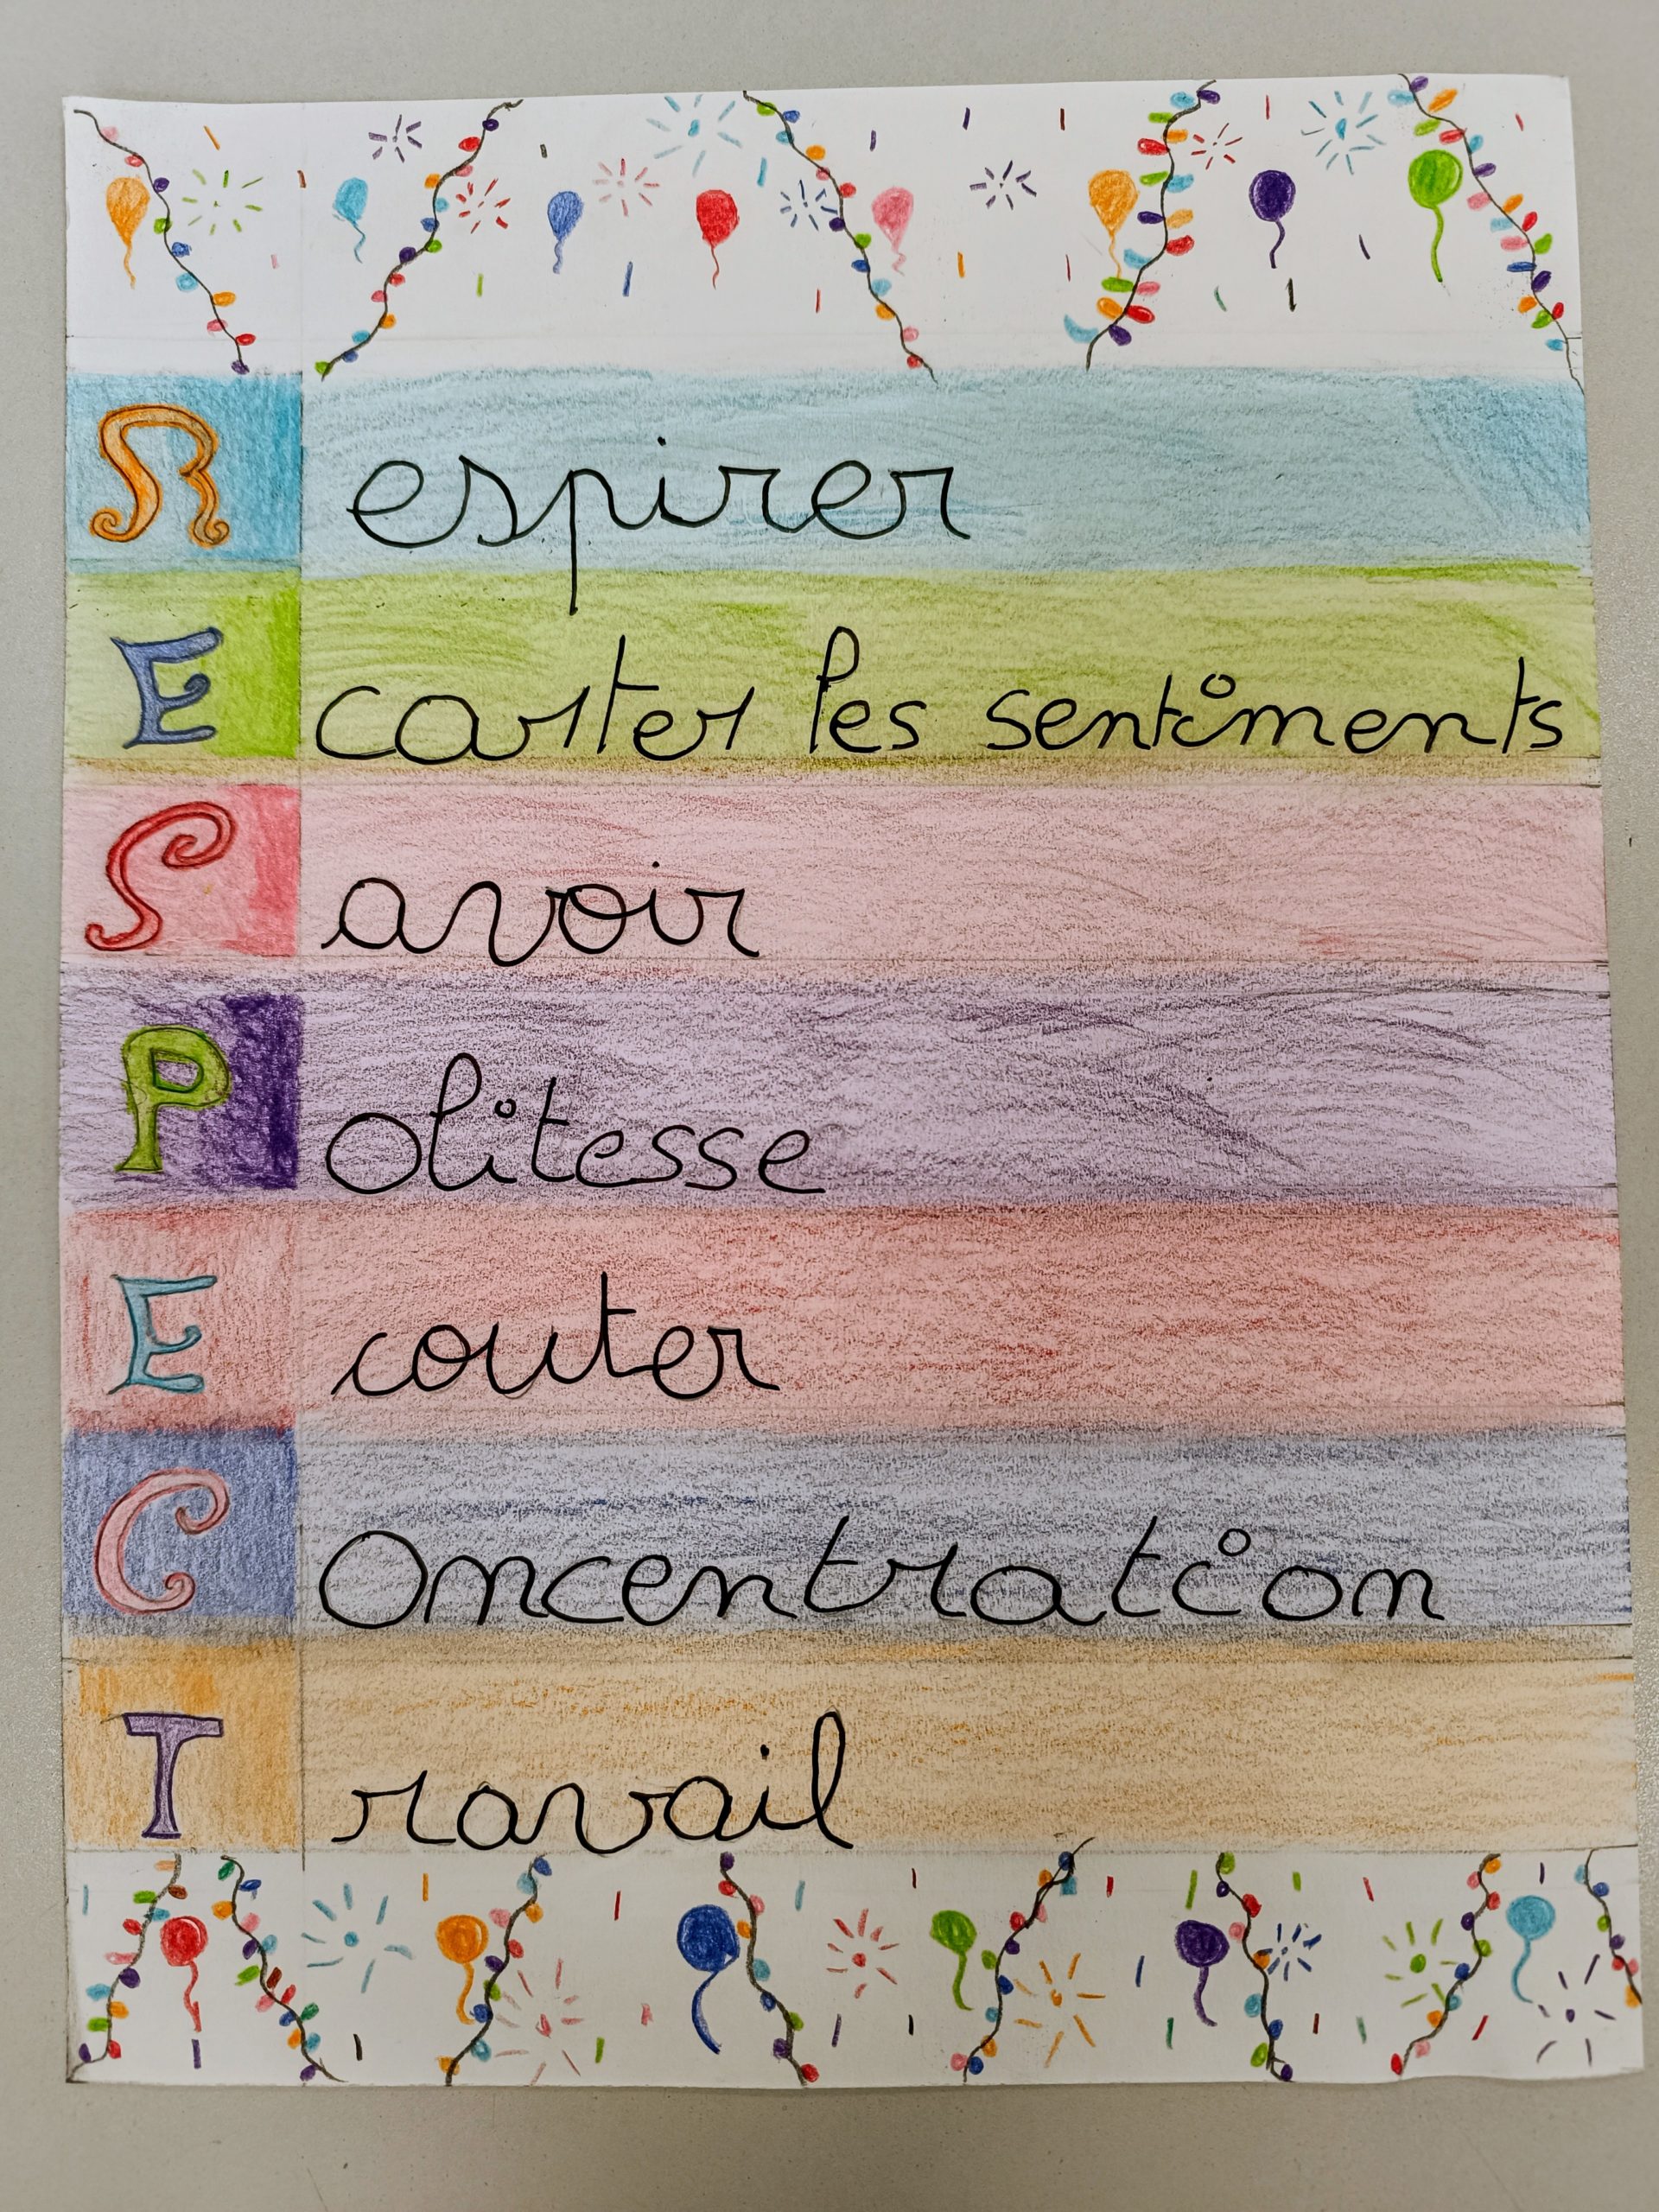 Respirer
Ecarter les sentiments
Savoir
Politesse
Ecouter
Concentration
Travail